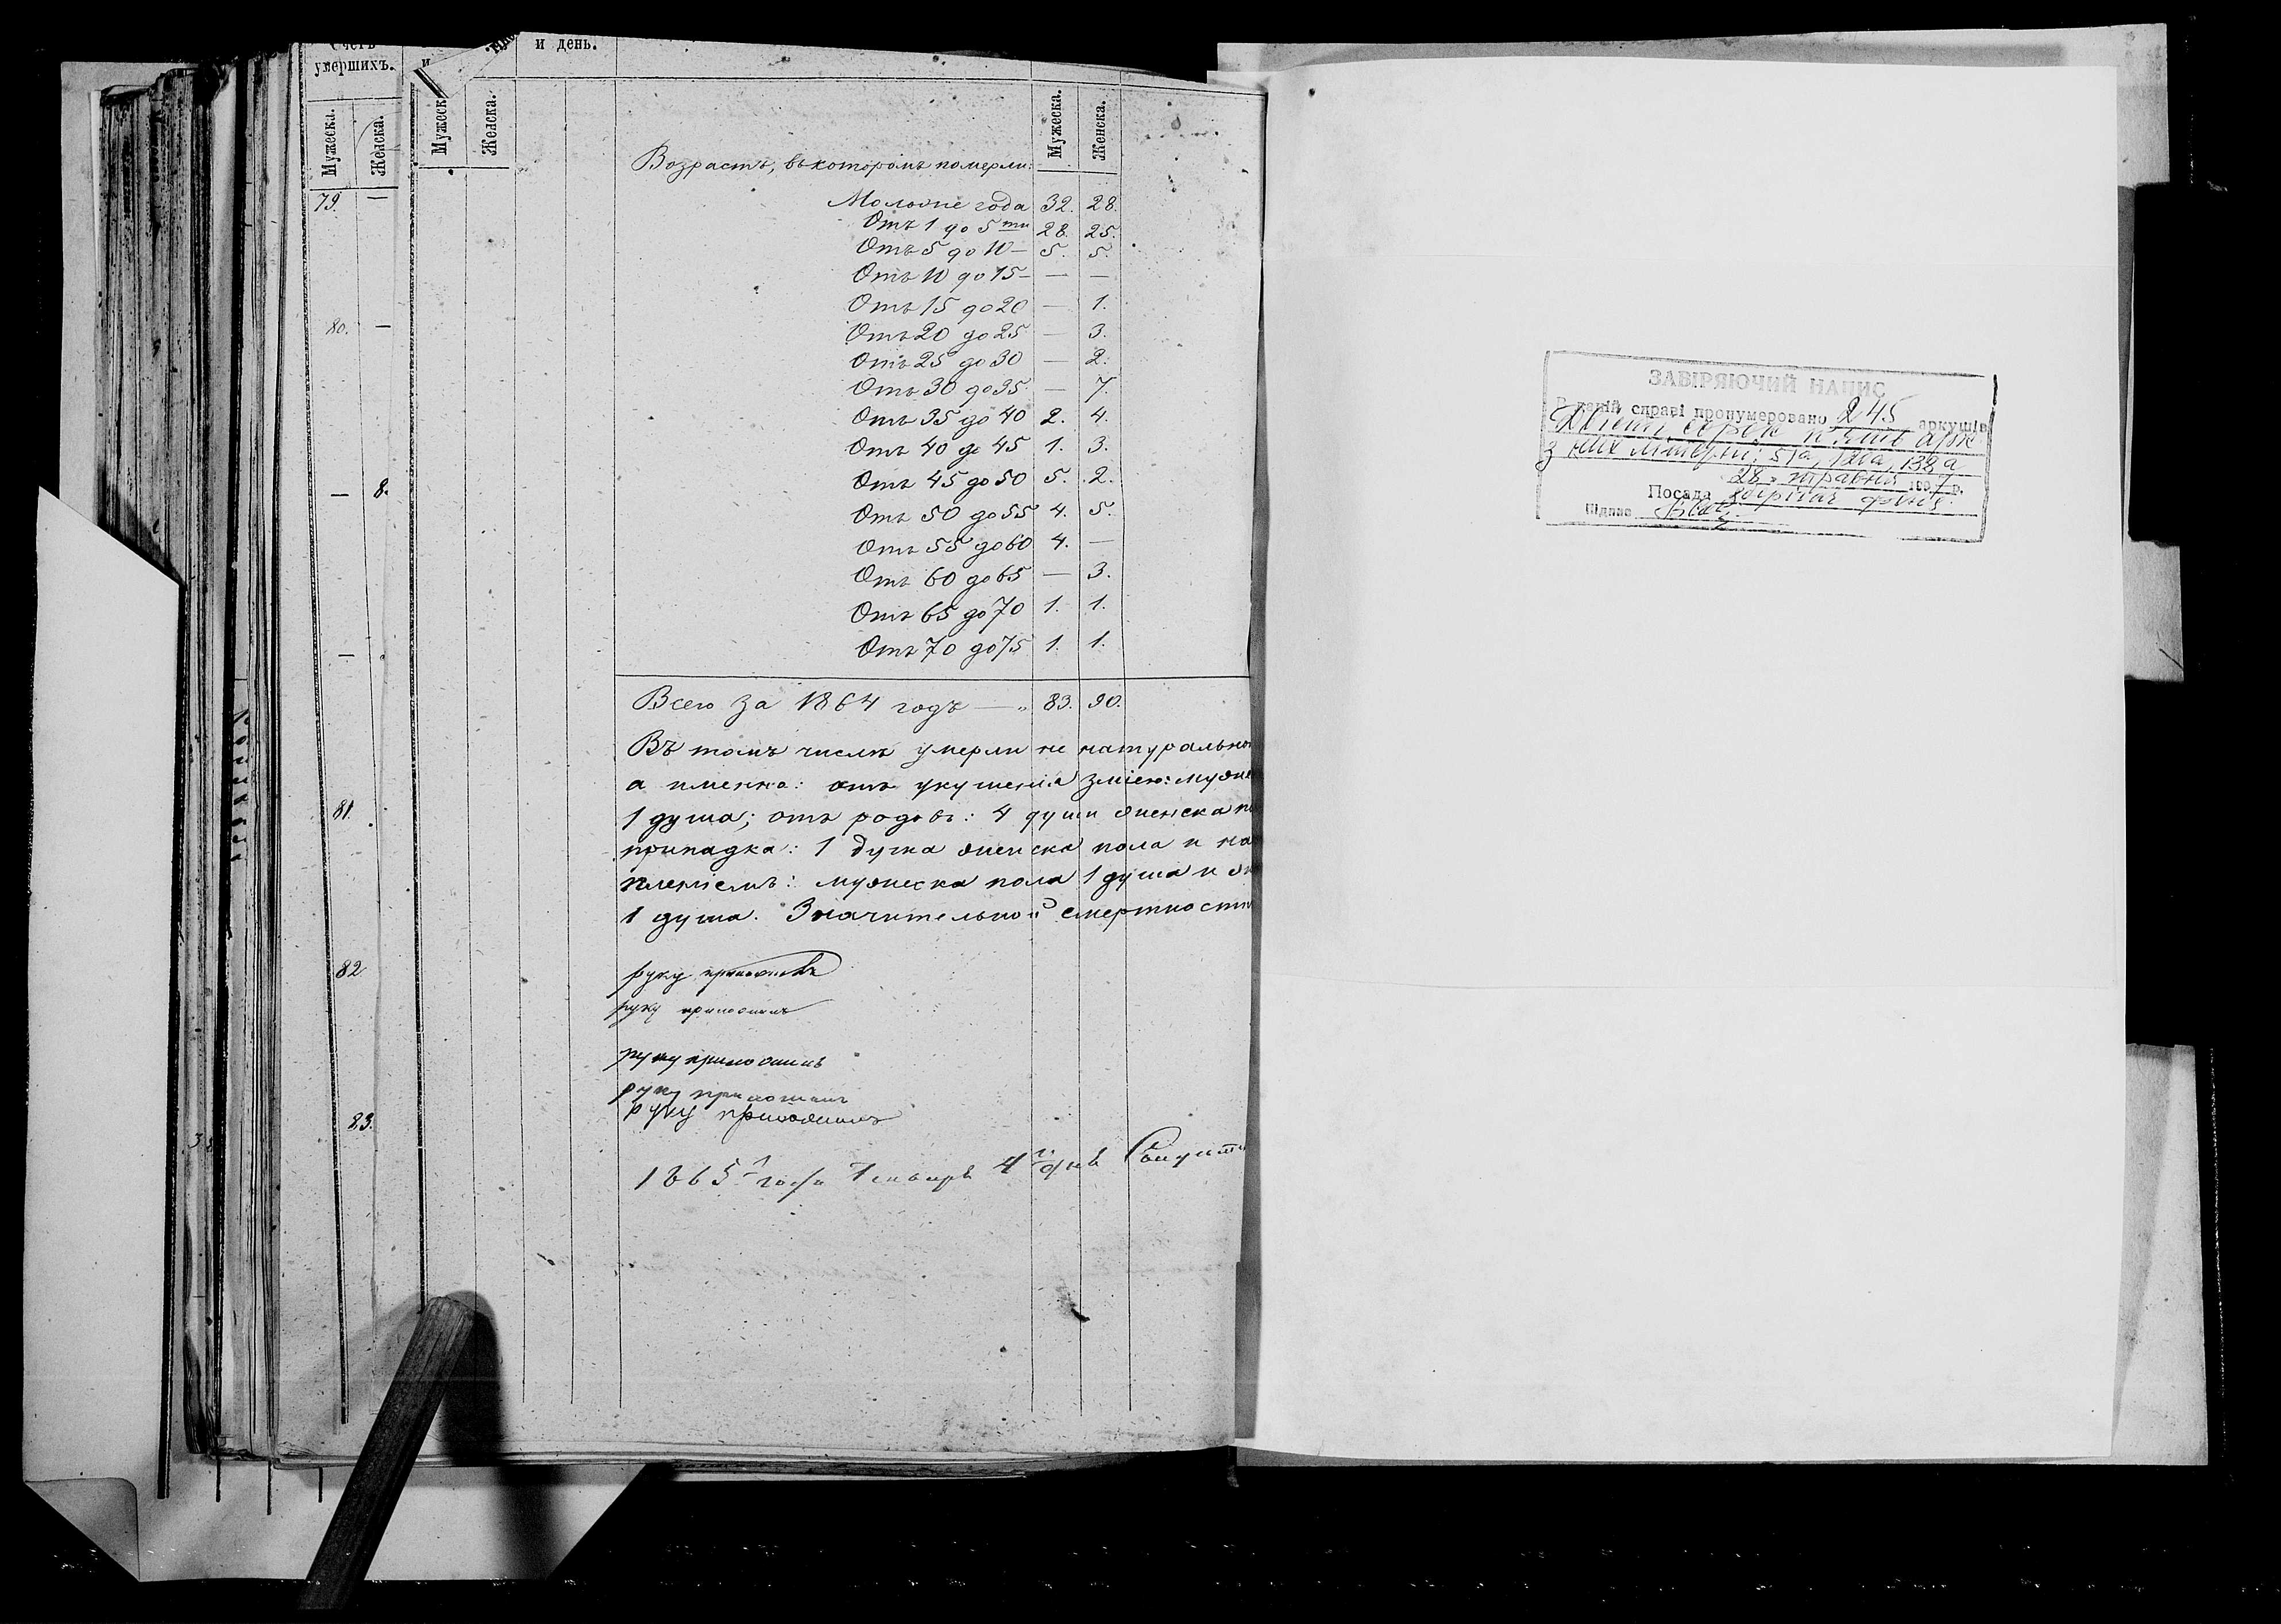 Счетъ
умершихъ.
и день.
Мужеска.
Женска.
Мужеск
Женска.
Мужеска.
Женска.
Возрастъ, въ которомъ померли:
79. —
Моложе года 32. 28.
Отъ 1 до 5ти 28. 25.
Отъ 5 до 10 — 5. 5.
Отъ 10 до 15 — — —
Отъ 15 до 20 — 1.
80. —
Отъ 20 до 25 — 3.
Отъ 25 до 30 — 2.
Отъ 30 до 35 — 7.
Отъ 35 до 40 2. 4.
Отъ 40 до 45 1. 3.
Отъ 45 до 50 5. 2.
— 8.
Отъ 50 до 55 4. 5.
Отъ 55 до 60 4. —
Отъ 60 до 65 — 3.
Отъ 65 до 70 1. 1.
Отъ 70 до 75 1. 1.
—
Всего за 1864 годъ — 83. 90.
Въ томъ числѣ умерли не натурально
а именно: отъ укушенія зміею: муже
81.
1 душа; отъ родовъ: 4 души женска п
припадка: 1 душа женска пола и на
пленіемъ: мужеска пола 1 душа и ж
1 душа. Значительной смертности
82
руку приложилъ
руку приложилъ
руку приложилъ
руку приложилъ
83.
руку приложилъ
1865 года Января 4 дня
ЗАВІРЯЮЧИЙ НАПИС
В даній справі пронумеровано 245 аркушів
Двісті сорок п'ять арк
з них літерні: 51а, 121а, 138а
28 травня 1997 р.
Посада
Підпис